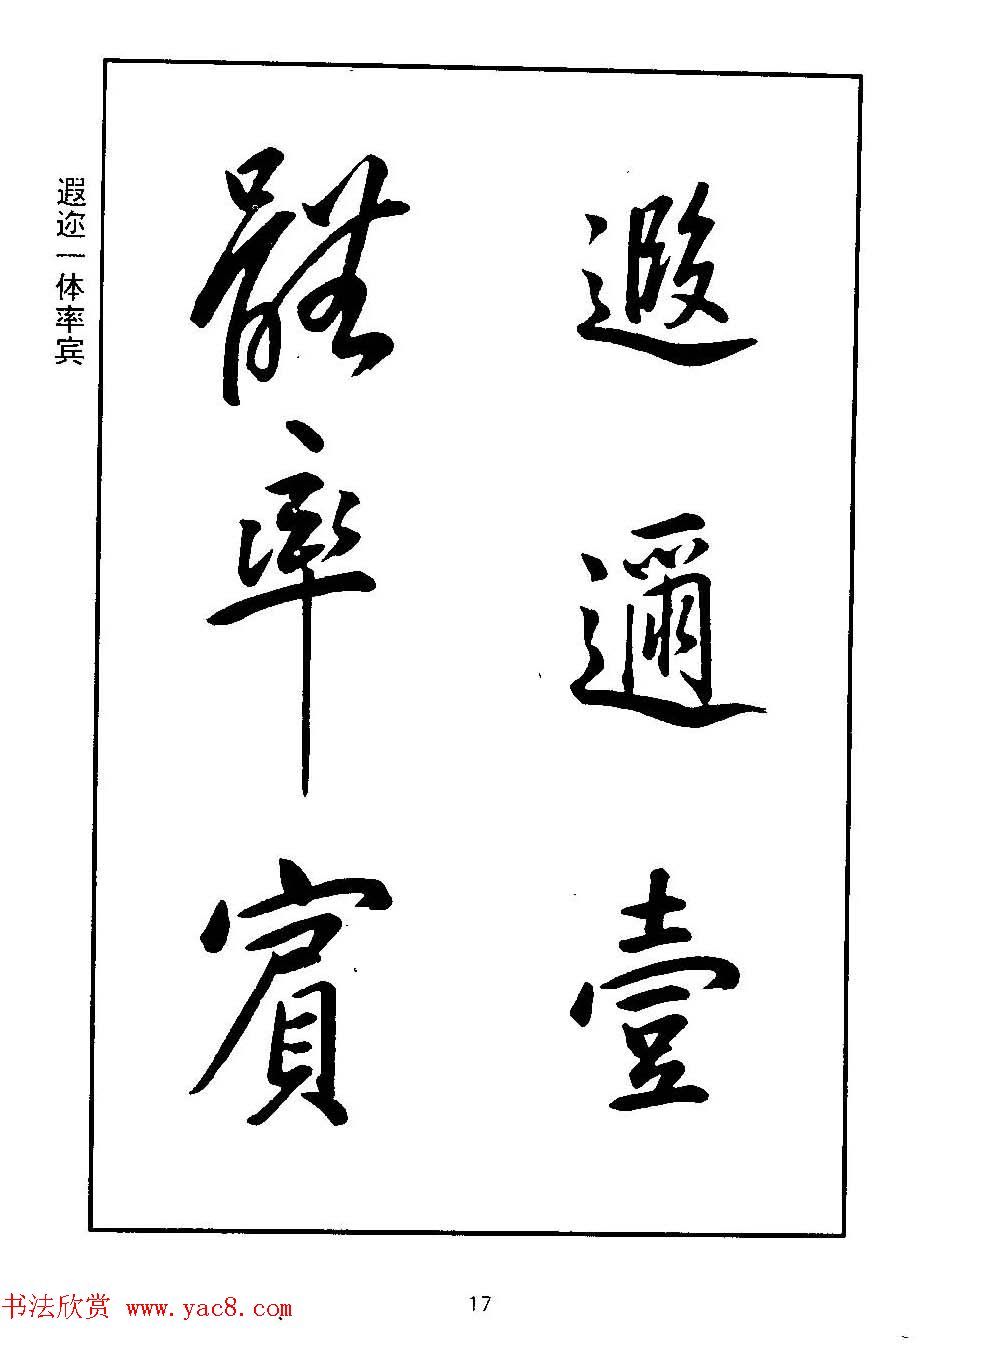 遐邇壹
體率賓
遐迩一体率宾
17
书法欣赏 www.yac8.com